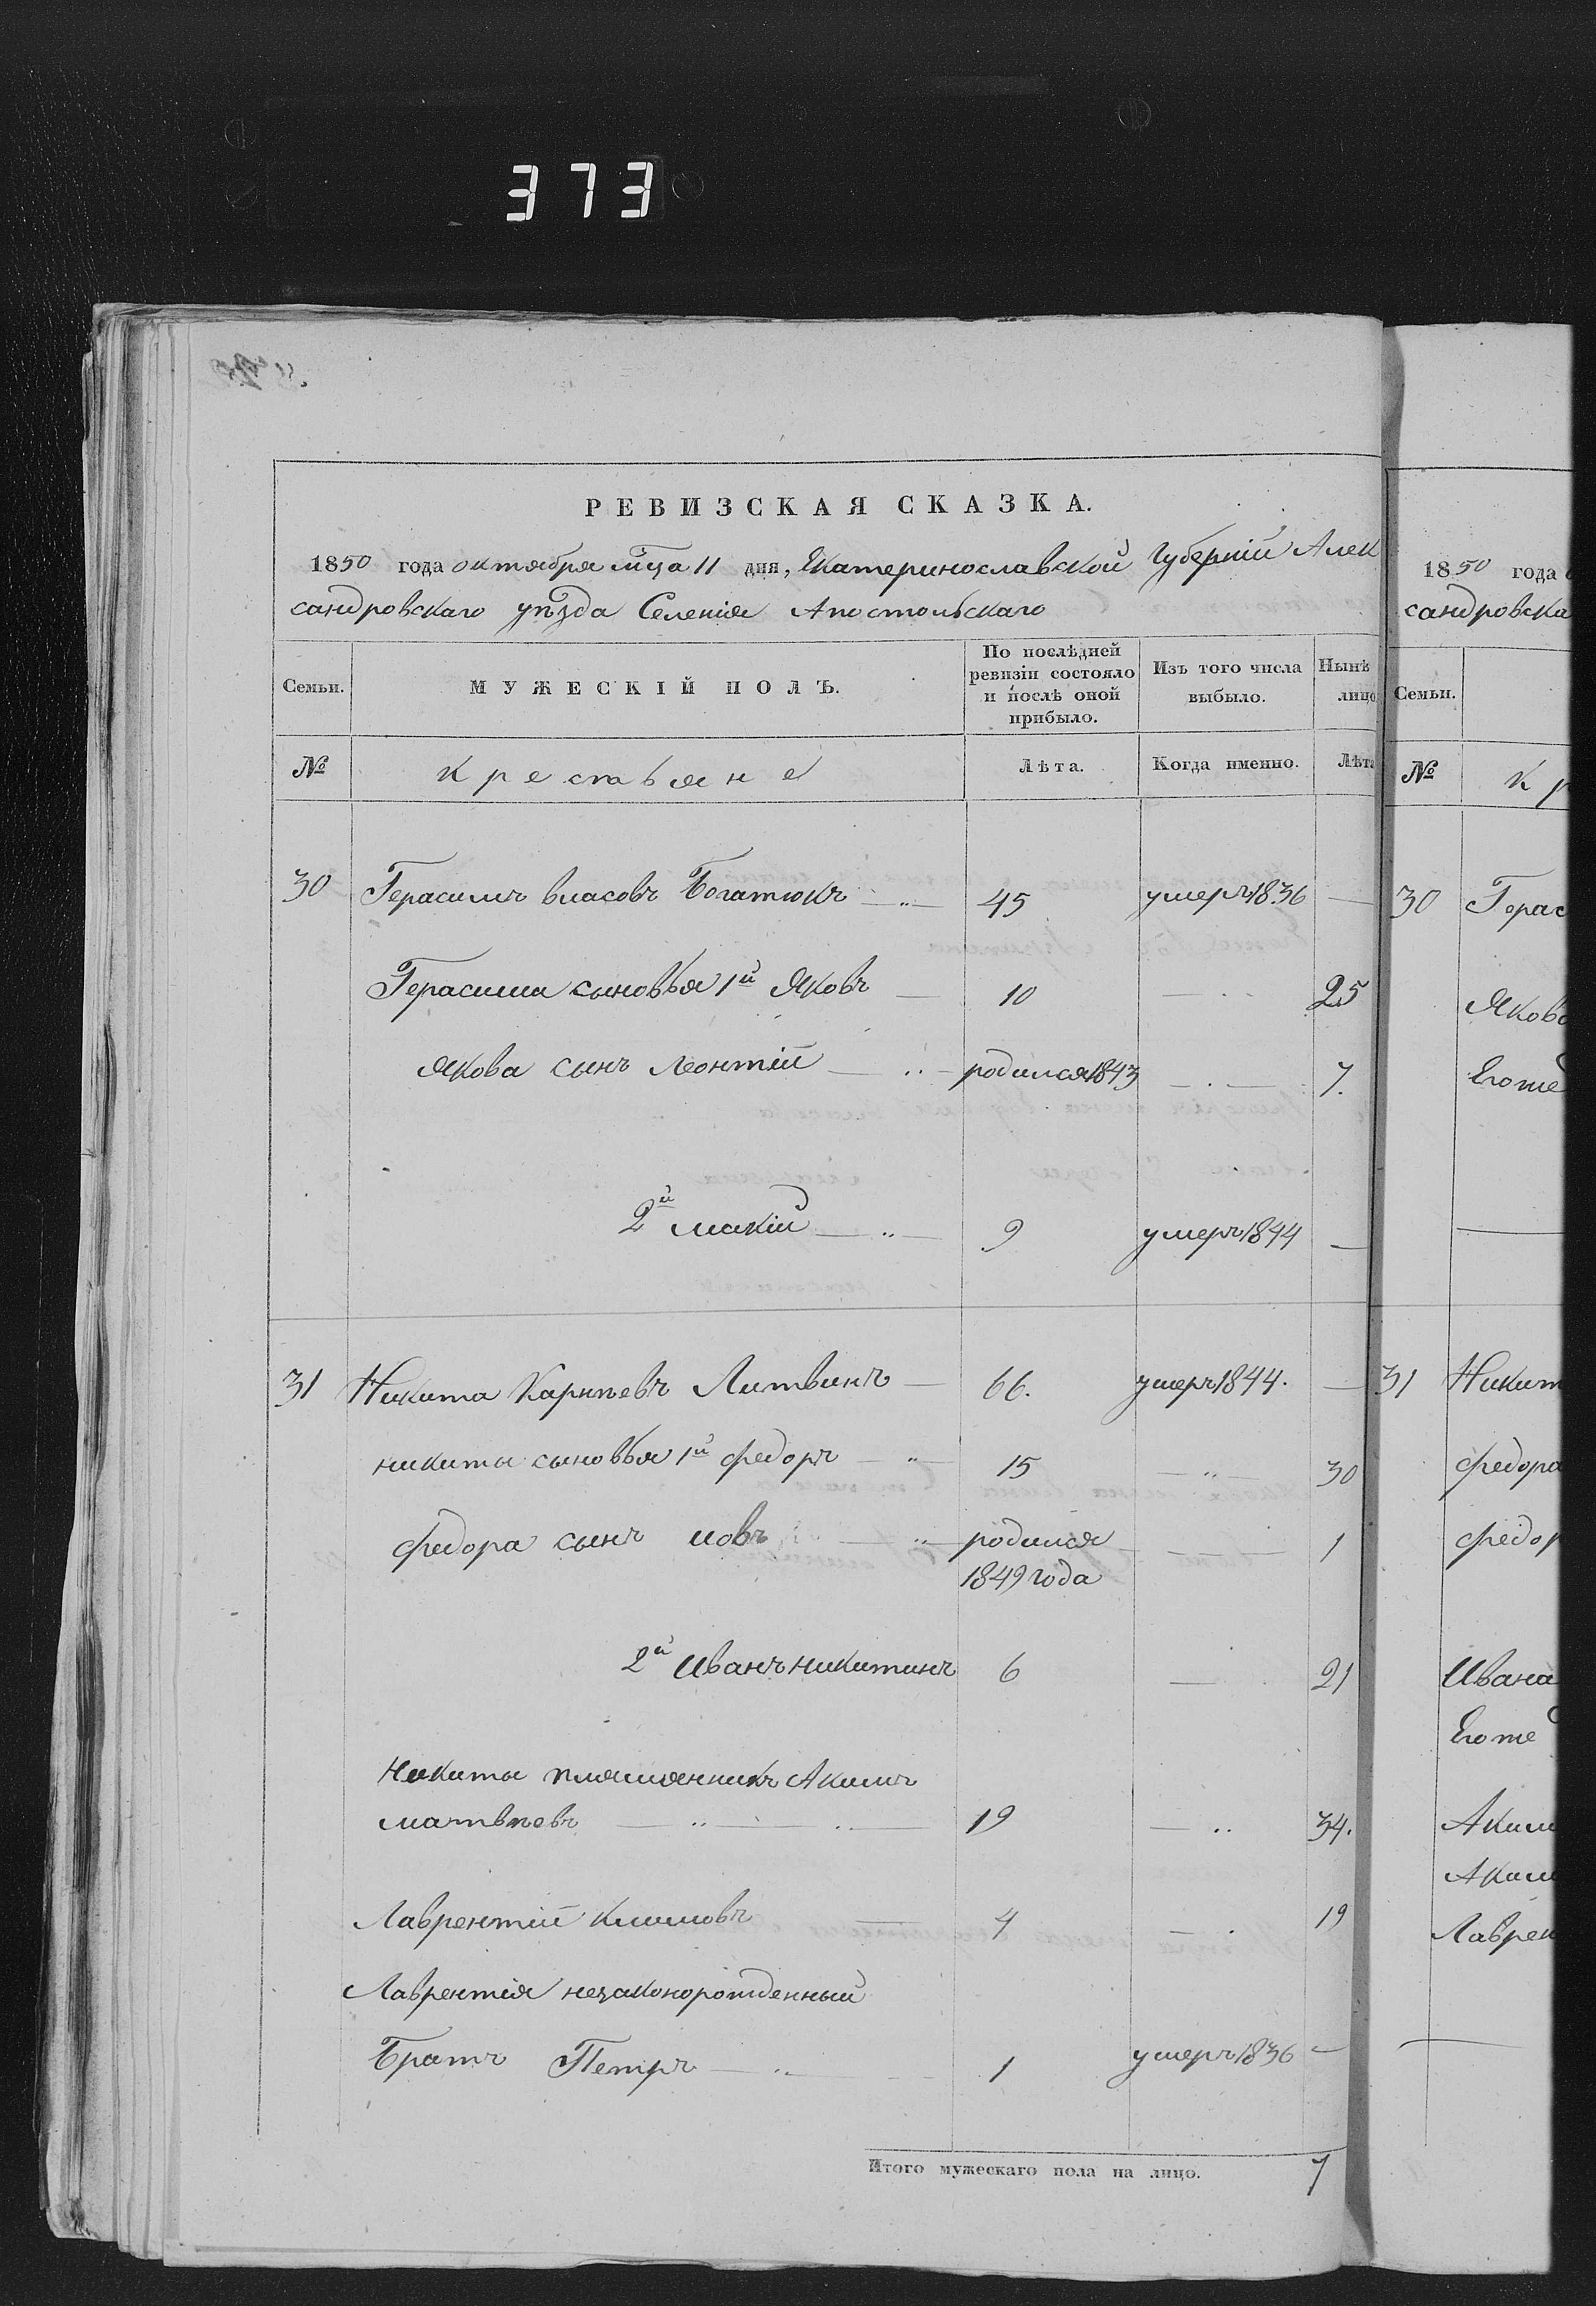 373
РЕВИЗСКАЯ СКАЗКА.
1850 года октября мца 11 дня, Екатеринославской Губерніи Алек
сандровскаго уѣзда Селенія Апостольскаго
Семьи. МУЖЕСКІЙ ПОЛЪ. По послѣдней ревизіи состояло и послѣ оной прибыло. Изъ того числа выбыло. Нынѣ лицо
№ Крестьяне Лѣта. Когда именно. Лѣта
30 Герасимъ власовъ Богатюкъ 45 умеръ 1836
Герасима сыновья 1й Яковъ 10 25
Якова сынъ Леонтій родился 1843 7.
2й макій 9 умеръ 1844
31 Никита Карпѣевъ Литвинъ 66. умеръ 1844.
никиты сыновья 1й федоръ 15 30
федора сынъ иовъ родился 1
1849 года
2й Иванъ никитинъ 6 21
Никиты племянникъ Акимъ
матвѣевъ 19 34.
Лаврентій климовъ 4 19
Лаврентія незаконорожденный
Братъ Петръ 1 умеръ 1836
Итого мужескаго пола на лицо. 7
1850 года
сандровска
Семьи.
№ К р
30 Герас
Яково
Егоже
31 Никит
федора
федор
Ивана
Егоже
Аким
Аким
Лаврен